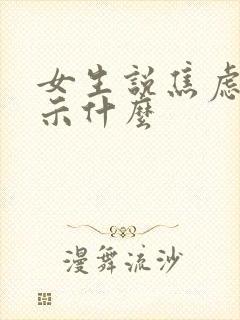 女生説焦慮
示什麼
漫舞流沙